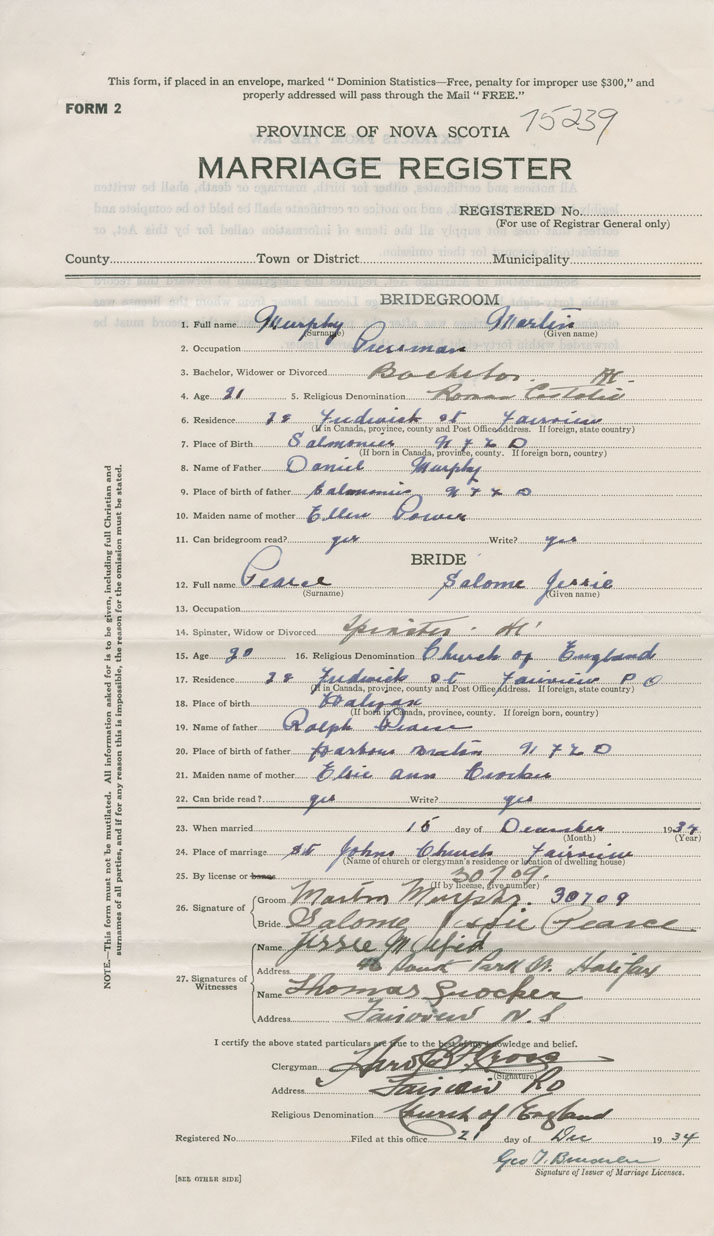 This form, if placed in an envelope, marked " Dominion Statistics—Free, penalty for improper use $300," and
properly addressed will pass through the Mail " FREE."
FORM 2
PROVINCE OF NOVA SCOTIA 75239
MARRIAGE REGISTER
REGISTERED No.
(For use of Registrar General only)
County Town or District Municipality
BRIDEGROOM
1. Full name Murphy Martin
(Surname) (Given name)
2. Occupation Pressman
3. Bachelor, Widower or Divorced Bachelor
4. Age 21 5. Religious Denomination Roman Catholic
6. Residence 28 St Fairview
(If in Canada, province, county and Post Office address. If foreign, state country)
7. Place of Birth Salmonier N F L D
(If born in Canada, province, county. If foreign born, country)
8. Name of Father Daniel Murphy
9. Place of birth of father Salmonier N F L D
10. Maiden name of mother Ellen Power
11. Can bridegroom read? yes Write? yes
BRIDE
12. Full name Pearce Salome Jessie
(Surname) (Given name)
13. Occupation
14. Spinster, Widow or Divorced Spinster
15. Age 20 16. Religious Denomination Church of England
17. Residence 28 St Fairview P O
(If in Canada, province, county and Post Office address. If foreign, state country)
18. Place of birth Halifax
(If born in Canada, province, county. If foreign born, country)
19. Name of father Ralph Pearce
20. Place of birth of father Harbour N F L D
21. Maiden name of mother Elsie Ann Crocker
22. Can bride read? yes Write? yes
23. When married 15 day of December 1934
(Month) (Year)
24. Place of marriage St Johns Church Fairview
(Name of church or clergyman's residence or location of dwelling house)
25. By license or banns 30709.
(If by license, give number)
26. Signature of Groom Martin Murphy. 30709
Bride Salome Jessie Pearce
27. Signatures of Witnesses
Name Jessie
Address South Park St. Halifax
Name Thomas Crocker
Address Fairview N.S
I certify the above stated particulars are true to the best of my knowledge and belief.
Clergyman
(Signature)
Address Fairview
Religious Denomination Church of England
Registered No. Filed at this office 21 day of Dec 1934
Geo T.
Signature of Issuer of Marriage Licenses.
[SEE OTHER SIDE]
NOTE.—This form must not be mutilated. All information asked for is to be given, including full Christian and
surnames of all parties, and if for any reason this is impossible, the reason for the omission must be stated.